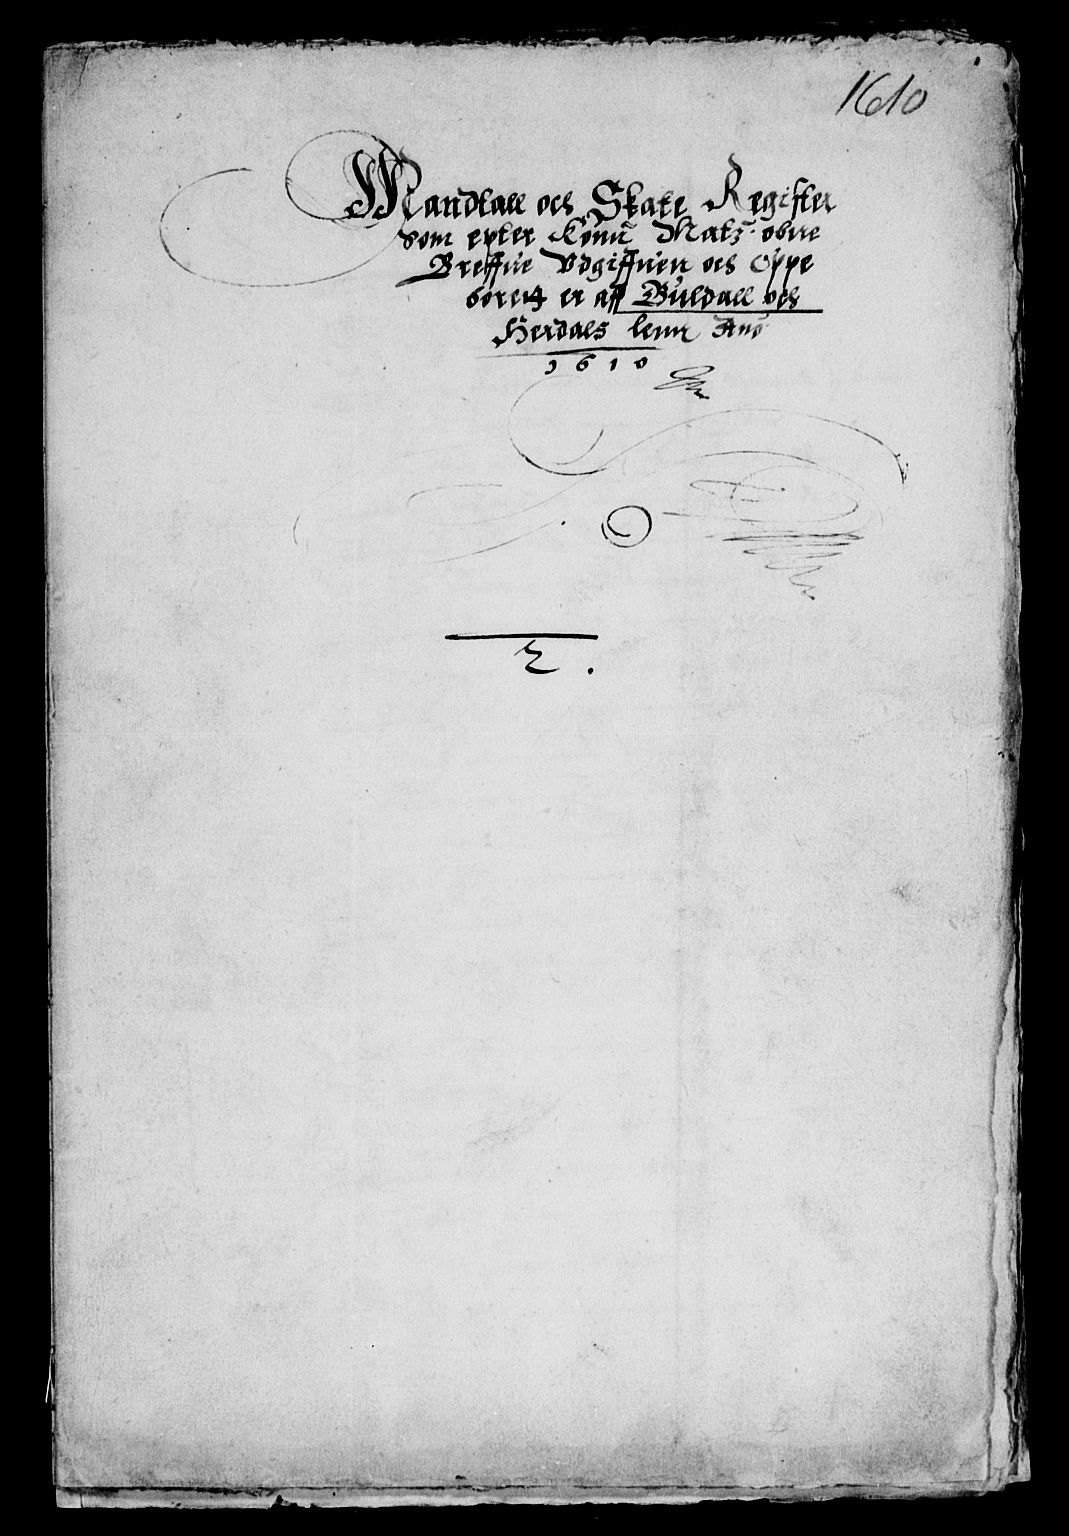 1610
Mandtall och Skate Register
som epter Konn: Matz: obne
Breffue Vdgiffuen och Oppe
borett er aff Buldall och
Herdals lenn Ano
1610
2.